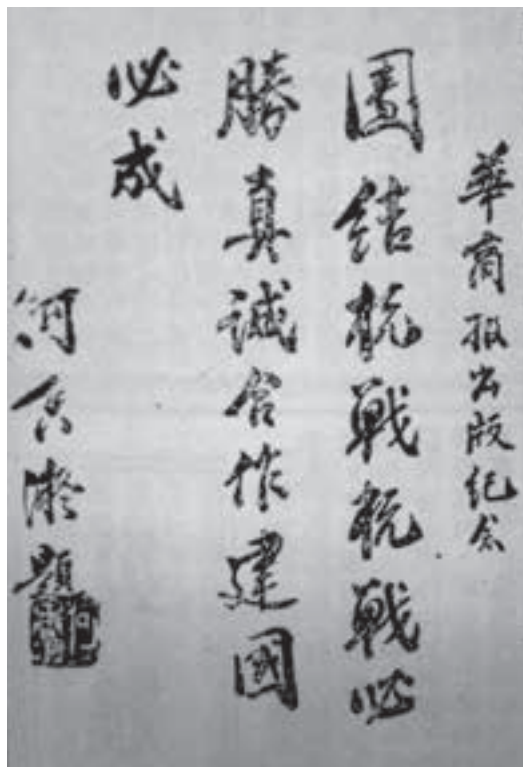 華商报出版纪念
團結抗戰抗戰必
勝真誠合作建國
必成
何香凝題